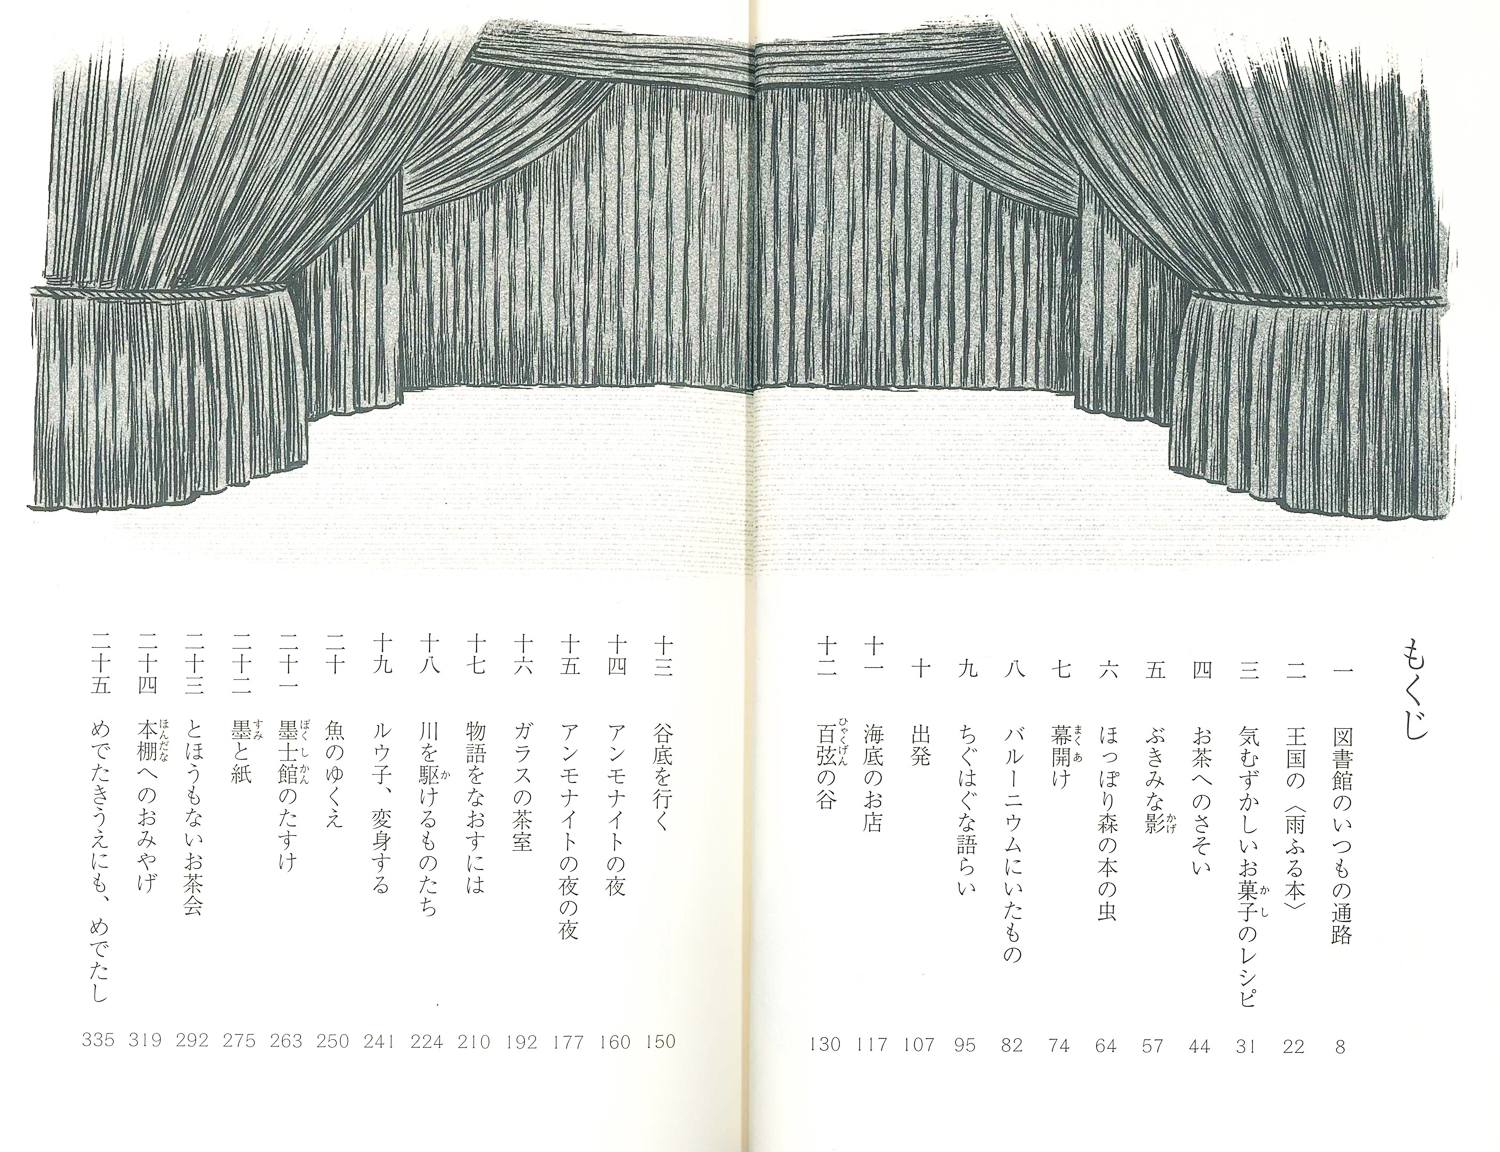 もくじ
一 図書館のいつもの通路 8
二 王国の〈雨ふる本〉 22
三 気むずかしいお菓子のレシピ 31
四 お茶へのさそい 44
五 ぶきみな影 57
六 ほっぽり森の本の虫 64
七 幕開け 74
八 バルーニウムにいたもの 82
九 ちぐはぐな語らい 95
十 出発 107
十一 海底のお店 117
十二 百弦の谷 130
十三 谷底を行く 150
十四 アンモナイトの夜 160
十五 アンモナイトの夜の夜 177
十六 ガラスの茶室 192
十七 物語をなおすには 210
十八 川を駆けるものたち 224
十九 ルウ子、変身する 241
二十 魚のゆくえ 250
二十一 墨士館のたすけ 263
二十二 墨と紙 275
二十三 とほうもないお茶会 292
二十四 本棚へのおみやげ 319
二十五 めでたきうえにも、めでたし 335